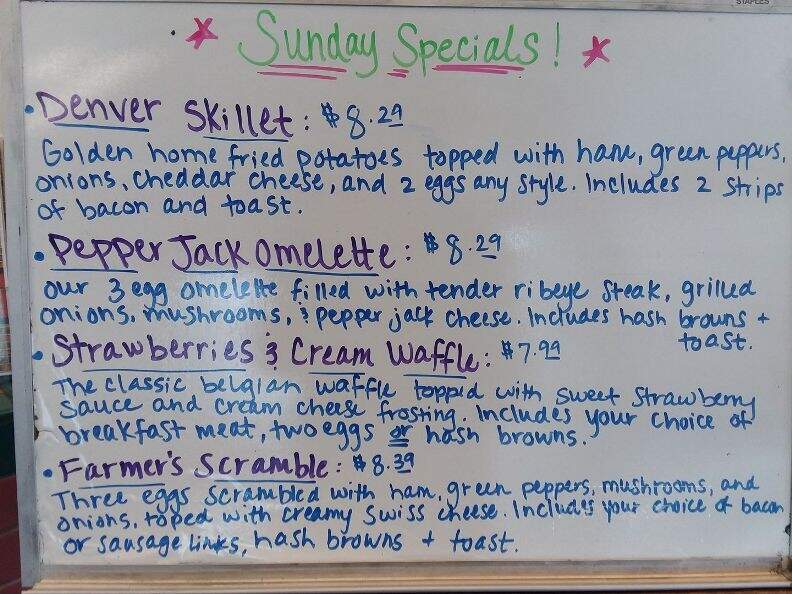 STAPLES
Sunday Specials!
• Denver Skillet: $8.29
Golden home fried potatoes topped with ham, green peppers,
onions, cheddar cheese, and 2 eggs any style. Includes 2 strips
of bacon and toast.
• Pepper Jack Omelette: $8.29
Our 3 egg omelette filled with tender ribeye steak, grilled
onions, mushrooms, & pepper jack cheese. Includes hash browns +
toast.
• Strawberries & Cream Waffle: $7.99
The classic belgian waffle topped with sweet strawberry
sauce and cream cheese frosting. Includes your choice of
breakfast meat, two eggs or hash browns.
• Farmer's Scramble: $8.39
Three eggs scrambled with ham, green peppers, mushrooms, and
onions, toped with creamy swiss cheese. Includes your choice of bacon
or sausage links, hash browns + toast.